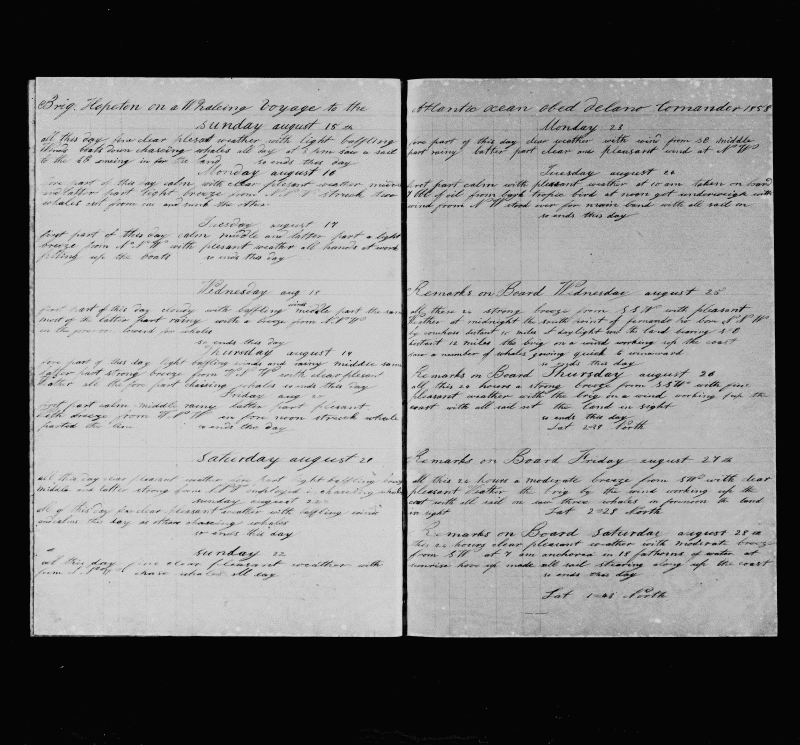 Brig Hopeton on a Whaleing Voyage to the
Sunday august 15 th
all this day fine clear plesant weather with light baffling
winds boats down chaseing whales all day at 5 pm saw a sail
to the
so ends this day
Monday august 16
fore part of this day calm with clear plesant weather middle
and latter part light breeze from struck two
whales cut from one and sunk the other
Tuesday august 17
first part of this day calm middle and latter part a light
breeze from N N W with plesant weather all hands at work
fitting up the boats so ends this day
Wednesday aug 18
winds
first part of this day cloudy with baffling middle part the same
most of the latter part rainy with a breeze from N N W
for whales
so ends this day
Thursday august 19
fore part of this day light baffling winds and rainy middle same
latter part strong breeze from with clear plesant
weather all the fore part chaseing whales so ends this day
Friday aug 20
first part calm middle rainy latter part plesant
with breeze from W N W in fore noon struck whale
parted the line so ends this day
Saturday august 21
all this day clear pleasant weather fore part light baffling
middle and latter strong from employed in chaseing whales
Sunday august 22
all of this day fine clear pleasant weather with baffling winds
this day as others chaseing whales
so ends this day
Sunday 22
all this day fine clear pleasant weather with
from chase whales all day
Atlantic ocean obed delano Comander 1858
Monday 23
fore part of this day clear weather with wind from SE middle
part rainy latter part clear and pleasant wind at N W
Tuesday august 24
first part calm with pleasant weather at 10 am taken on board
7 bbl of oil from bark tropic bird at noon got underweigh with
wind from N W stood over for main land with all sail on
so ends this day
Remarks on Board Wednesday august 25
all these 24 strong breeze from S S W with pleasant
weather at midnight the south point of fernando po bore N N W
by compass distant 10 miles at daylight saw the land bearing S E
distant 12 miles the brig on a wind working up the coast
saw a number of whales going quick to winward
so ends this day
Remarks on Board Thursday august 26
all this 24 hours a strong breeze from S S W with fine
pleasant weather with the brig on a wind working up the
coast with all sail set the land in sight
so ends this day
Lat 2=39 North
Remarks on Board Friday august 27 th
all this 24 hours a moderate breeze from S W with clear
pleasant weather the brig by the wind working up the
cost with all sail on saw three whales in forenoon the land
in sight Lat 2=28 North
Remarks on Board Saturday august 28 th
this 24 hours clear pleasant weather with moderate breeze
from S W at 7 am anchored in 18 fathoms of water at
sunrise hove up made all sail stearing along up the coast
so ends this day
Lat 1=48 North